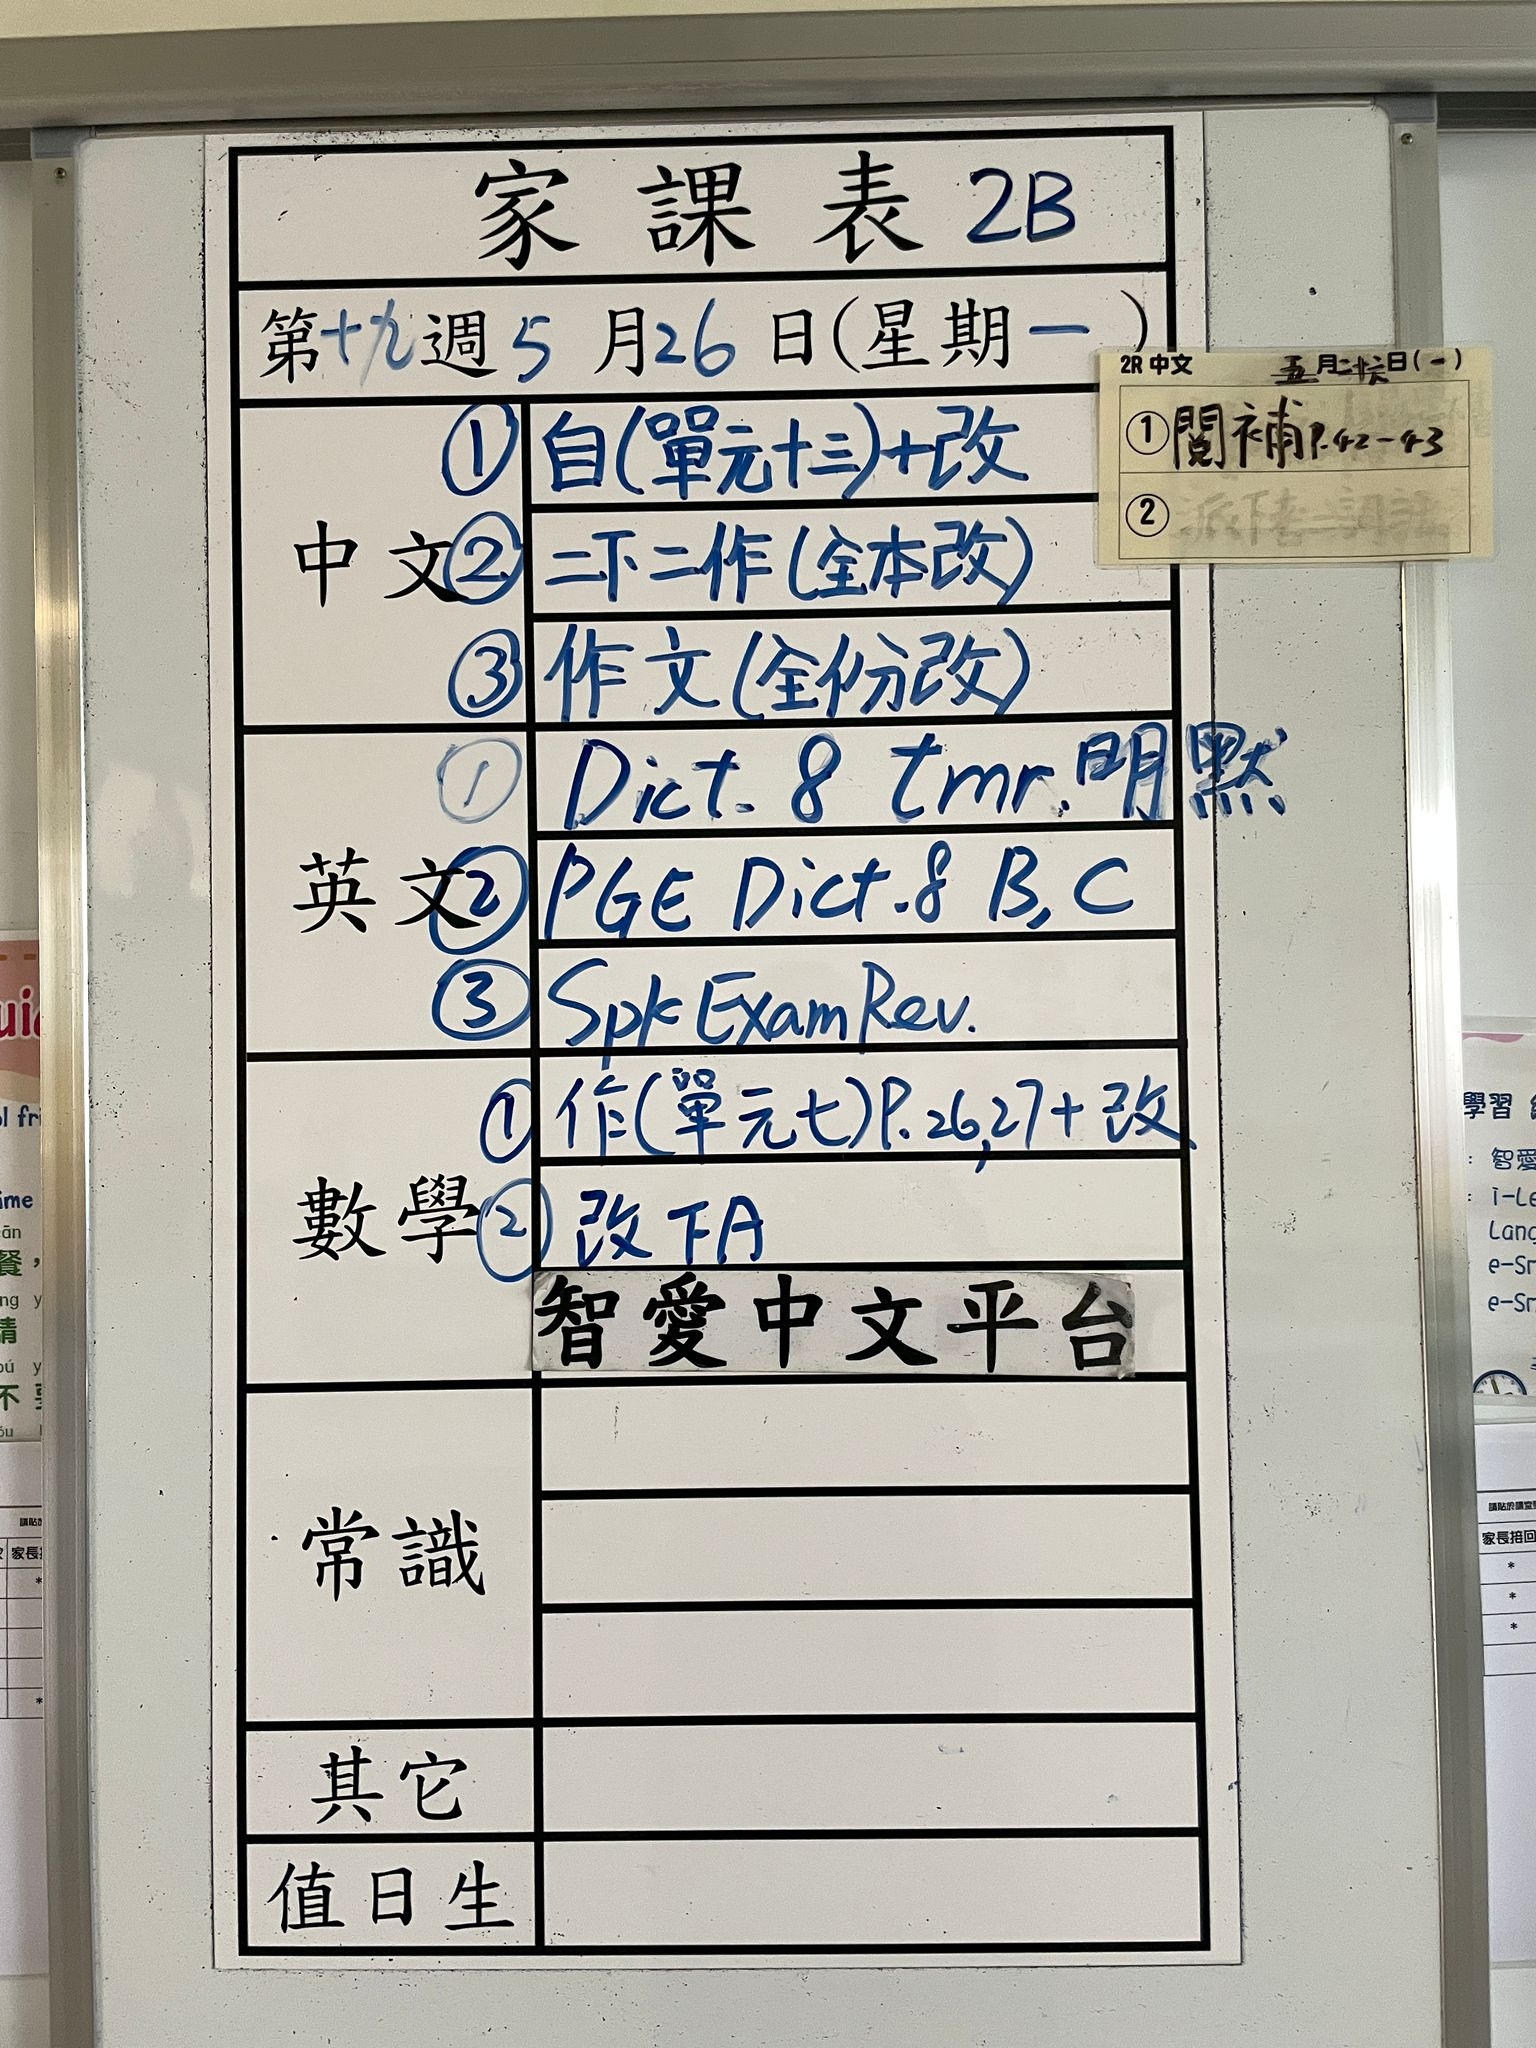 家課表 2B
第十九週 5月26日(星期一)
2R 中文 五月二十六日(一)
① 閱補P.42-43
②
中文
① 自(單元十三)+改
② 二下二作(全本改)
③ 作文(全份改)
英文
① Dict. 8 tmr. 明默
② PGE Dict. 8 B, C
③ Spk Exam Rev.
數學
① 作(單元七)P.26,27+改
② 改FA
智愛中文平台
常識
其它
值日生
學習
智愛
i-Le
Lang
e-Sm
e-Sm
家長接回
*
*
*